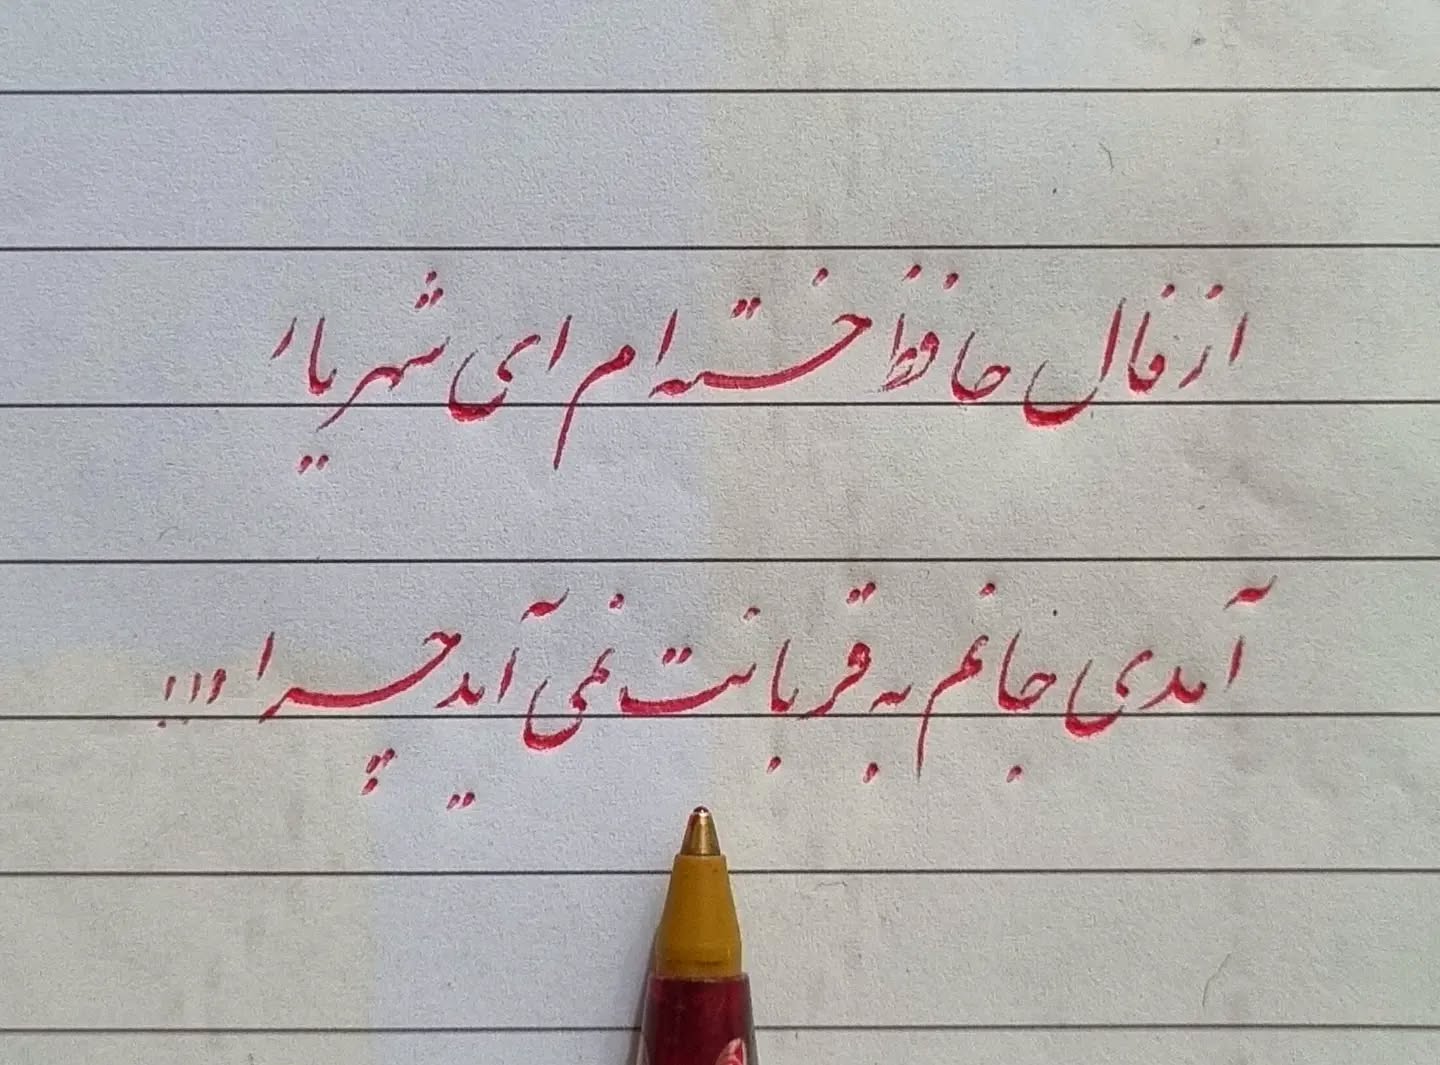 از فال حافظ خسته ام ای شهریار
آمدی جانم به قربانت نمی آید چرا